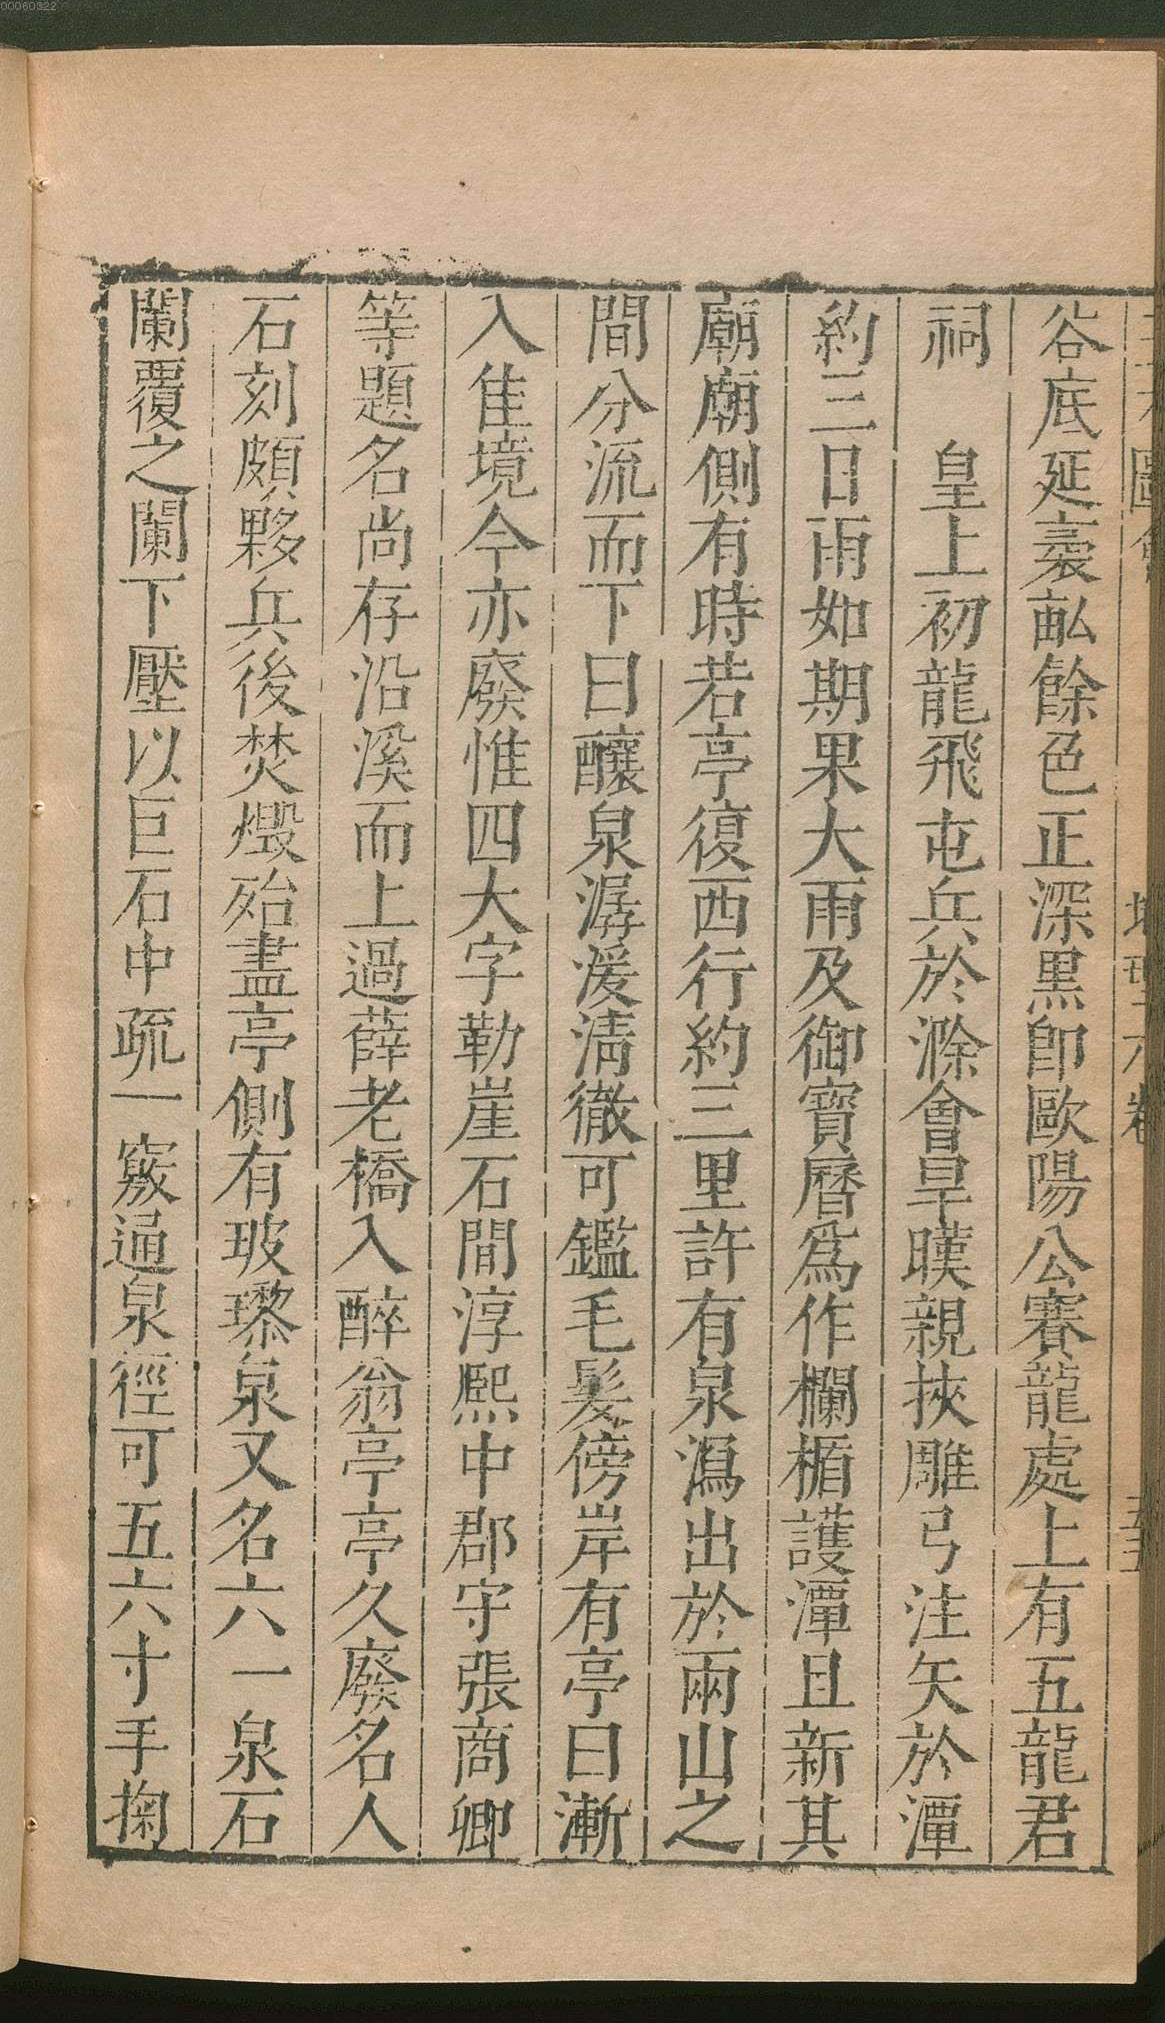 谷底延袤畝餘色正深黒卽歐陽公賽龍處上有五龍君
祠　皇上初龍飛屯兵於滁會旱暵親挾雕弓注矢於潭
約三日雨如期果大雨及御寶曆爲作欄楯護潭且新其
廟廟側有時若亭復西行約三里許有泉瀉出於兩山之
間分流而下曰釀泉潺湲清徹可鑑毛髮傍岸有亭曰漸
入佳境今亦廢惟四大字勒崖石間淳熙中郡守張商卿
等題名尚存沿溪而上過薛老橋入醉翁亭亭久廢名人
石刻頗夥兵後焚燬殆盡亭側有玻瓈泉又名六一泉石
闌覆之闌下壓以巨石中疏一竅通泉徑可五六寸手掬
00060322